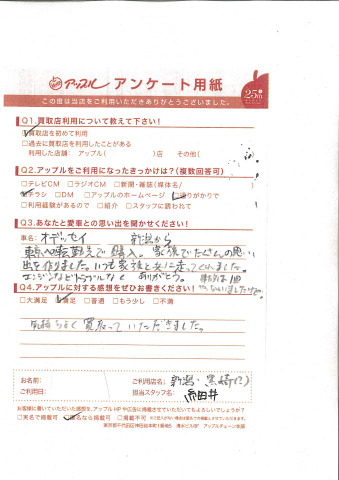 アップル アンケート用紙
25th
この度は当店をご利用いただきありがとうございました。
Q1.買取店利用について教えて下さい!
□買取店を初めて利用
□過去に買取店を利用したことがある
利用した店舗: アップル( )店 その他( )
Q2.アップルをご利用になったきっかけは?(複数回答可)
□テレビCM □ラジオCM □新聞・雑誌(媒体名/ )
□チラシ □DM □アップルのホームページ □通りがかりで
□利用経験があるので □紹介 □スタッフに誘われて
Q3.あなたと愛車との思い出を聞かせください!
車名: オデッセイ 新潟から
東京へ転勤先で購入。家族でたくさんの思い
出を作りました。いつも家族と共に走ってくれました。
エンジンなどトラブルなく ありがとう。
Q4.アップルに対する感想をぜひお書きください!
□大満足 □満足 □普通 □もう少し □不満
気持ちよく買取っていただきました。
お名前: ご利用店名: 新潟・黒崎
ご利用日: 担当スタッフ名:
お客様に書いていただいた感想を、アップルHPや広告に掲載させていただいてもよろしいでしょうか?
□実名で掲載可 □匿名なら掲載可 □掲載不可